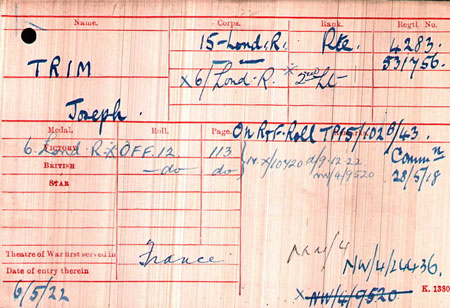 Name. Corps. Rank. Regtl. No.
15-Lond. R. Pte. 4283.
531756.
TRIM
X6/Lond. R. X 2nd Lt
Joseph.
Medal. Roll. Page.
On R.F. Roll TP15/102
VICTORY 6. Lond. R. X OFF. 12 113
BRITISH do do
N.X/10420 d/9.12.22
NW/4/9520
Commn
28/5/18
STAR
Theatre of War first served in France
Date of entry therein
NW/4/
NW/4/24436.
6/5/22
X NW/4/9520 K. 1380